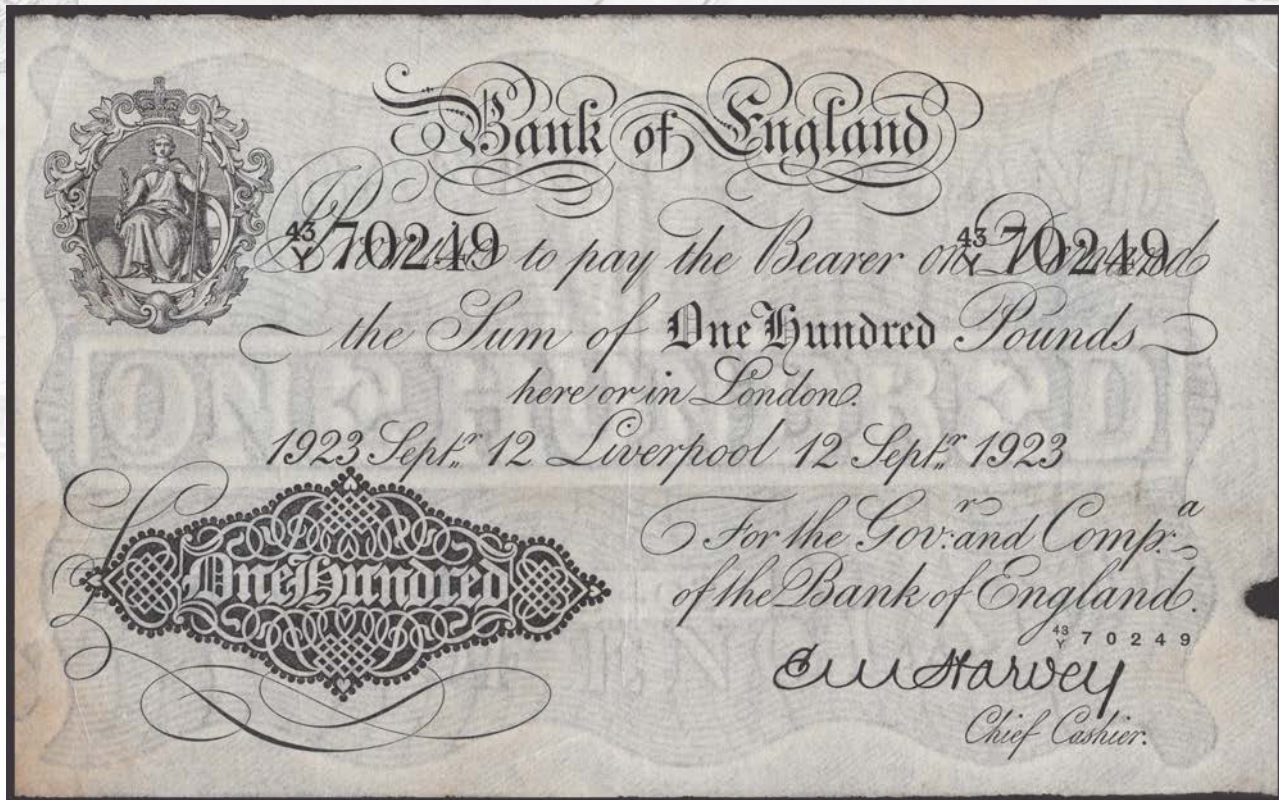 Bank of England
43/Y 70249 Promise to pay the Bearer on Demand 43/Y 70249
the Sum of One Hundred Pounds
here or in London.
1923 Septr. 12 Liverpool 12 Septr. 1923
For the Govr. and Compa.
of the Bank of England.
43/Y 70249
E M Harvey
Chief Cashier.
£ One Hundred
ONE HUNDRED